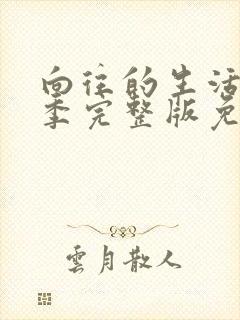 向往的生活
季完整版免
雲月散人